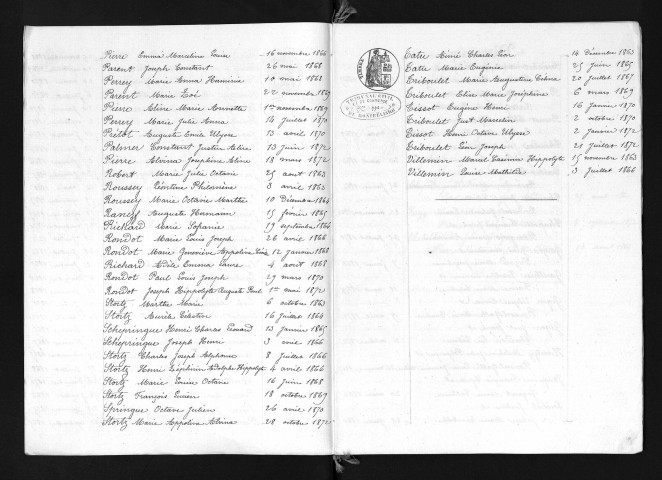 Pierre Emma Marcelina Louise 16 novembre 1866
Parent Joseph Constant 26 mai 1868
Perrey Marie Anna Herminie 10 mai 1868
Parent Marie Zoé 22 novembre 1869
Pierre Aline Marie Annette 1er novembre 1869
Perrey Marie Julie Anna 14 juillet 1870
Prétot Auguste Emile Ulysse 13 avril 1870
Palmer Constant Justin Célin 13 juin 1872
Pierre Alvina Joséphine Aline 18 mars 1872
Robert Marie Julie Octavie 25 août 1863
Roussey Léontine Philomène 3 avril 1863
Roussey Marie Octavie Marthe 10 Décembre 1864
Rancy Auguste Hermann 15 février 1865
Richard Marie Sopranie 19 septembre 1864
Rondot Marie Louis Joseph 26 avril 1866
Rondot Marie Geneviève Appolina 12 janvier 1868
Richard Adèle Emma Laure 4 août 1868
Rondot Paul Louis Joseph 29 mars 1870
Rondot Joseph Hippolyte Auguste Paul 1er mai 1872
Stortz Marthe Marie 6 octobre 1863
Stortz Aurèle Célestin 16 juillet 1864
Scheprinque Henri Charles Léonard 13 janvier 1865
Scheprinque Joseph Henri 3 avril 1866
Stortz Charles Joseph Alphonse 8 juillet 1866
Stortz Henri Zéphirin Adolphe Hippolyte 4 avril 1866
Stortz Marie Louise Octavie 16 juin 1868
Stortz François Lucien 18 octobre 1869
Springue Octave Julien 26 avril 1870
Stortz Marie Appolina Alvina 28 octobre 1872
Tatu Aimé Charles Léon 14 Décembre 1863
Tatu Marie Eugénie 25 juin 1865
Triboulet Marie Augustine 20 juillet 1867
Triboulet Elise Marie Joséphine 6 mars 1869
Tissot Eugène Henri 16 janvier 1870
Triboulet Just Marcelin 2 octobre 1870
Tissot Henri Octave Ulysse 2 janvier 1872
Triboulet Léon Joseph 21 juillet 1872
Villemin Marcel Casimir Hippolyte 15 novembre 1863
Villemin Louise Mathilde 3 juillet 1866